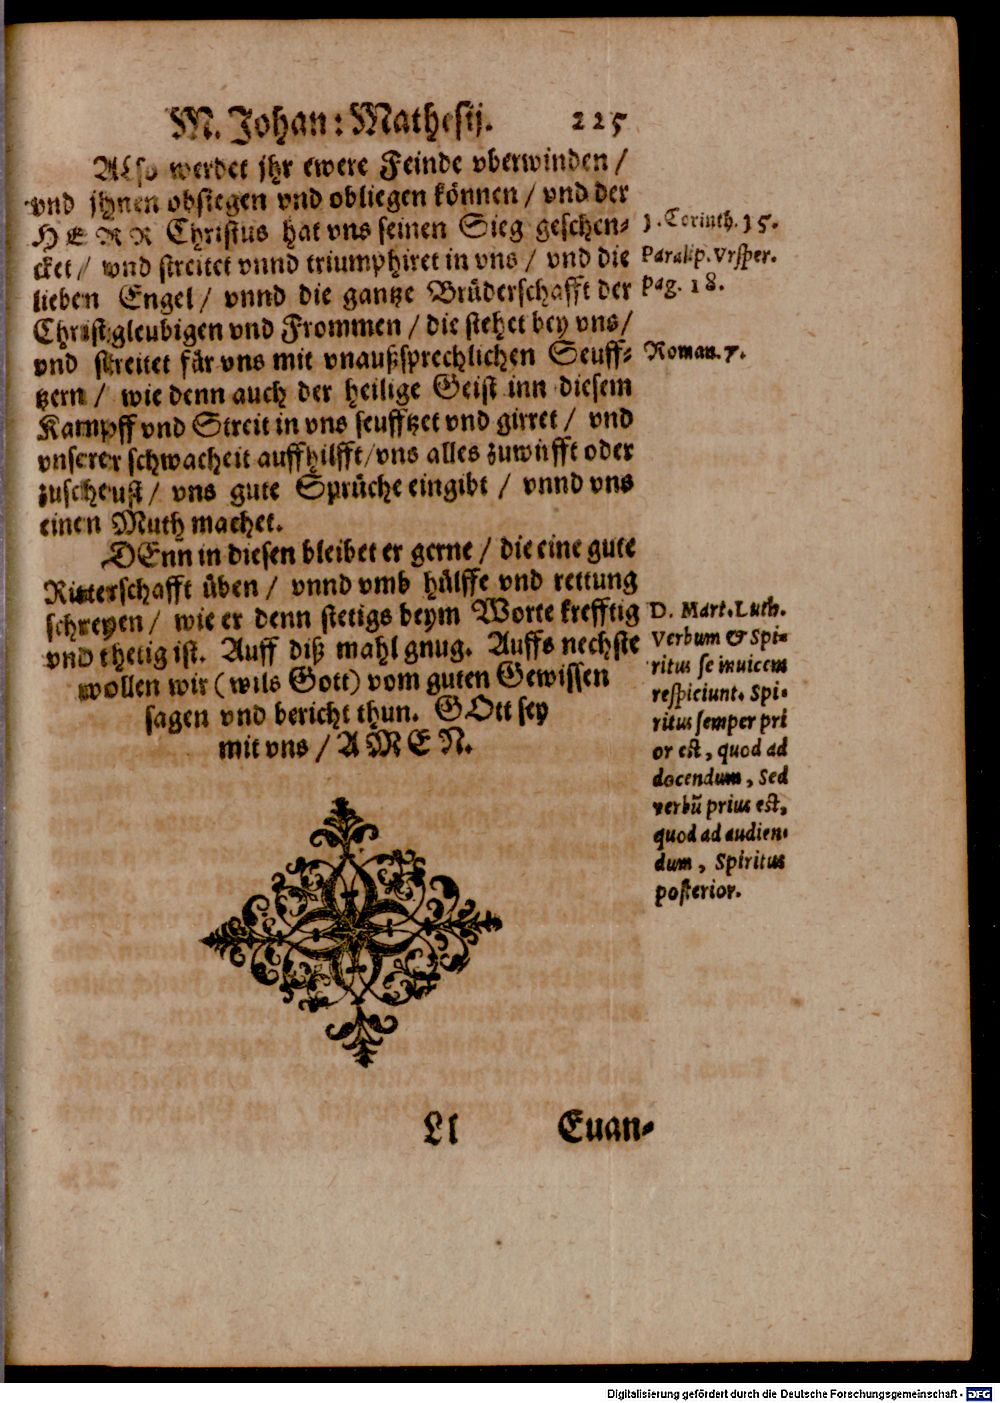 M. Johan: Mathesij. 225
Also werdet jhr ewere Feinde vberwinden /
vnd jhnen obsiegen vnd obliegen können / vnd der
HERR Christus hat vns seinen Sieg geschen-
cket / vnd streitet vnnd triumphiret in vns / vnd die
lieben Engel / vnnd die gantze Brüderschafft der
Christgleubigen vnd Frommen / die stehet bey vns /
vnd streitet für vns mit vnaußsprechlichen Seuff-
tzern / wie denn auch der heilige Geist inn diesem
Kampff vnd Streit in vns seufftzet vnd girret / vnd
vnserer schwacheit auffhilfft / vns alles zuwirfft oder
zuscheust / vns gute Sprüche eingibt / vnnd vns
einen Muth machet.
DEnn in diesen bleibet er gerne / die eine gute
Ritterschafft üben / vnnd vmb hülffe vnd rettung
schreyen / wie er denn stetigs beym Worte krefftig
vnd thetig ist. Auff diß mahl gnug. Auffs nechste
wollen wir (wils Gott) vom guten Gewissen
sagen vnd bericht thun. GOtt sey
mit vns / AMEN.
1. Corinth. 15.
Paralip. Vrsper.
pag. 18.
Roman. 7.
D. Mart. Luth.
Verbum & Spi-
ritus se inuicem
respiciunt. Spi-
ritus semper pri
or est, quod ad
docendum, Sed
verbũ prius est,
quod ad audien-
dum, Spiritus
posterior.
Ll Euan-
Digitalisierung gefördert durch die Deutsche Forschungsgemeinschaft - DFG